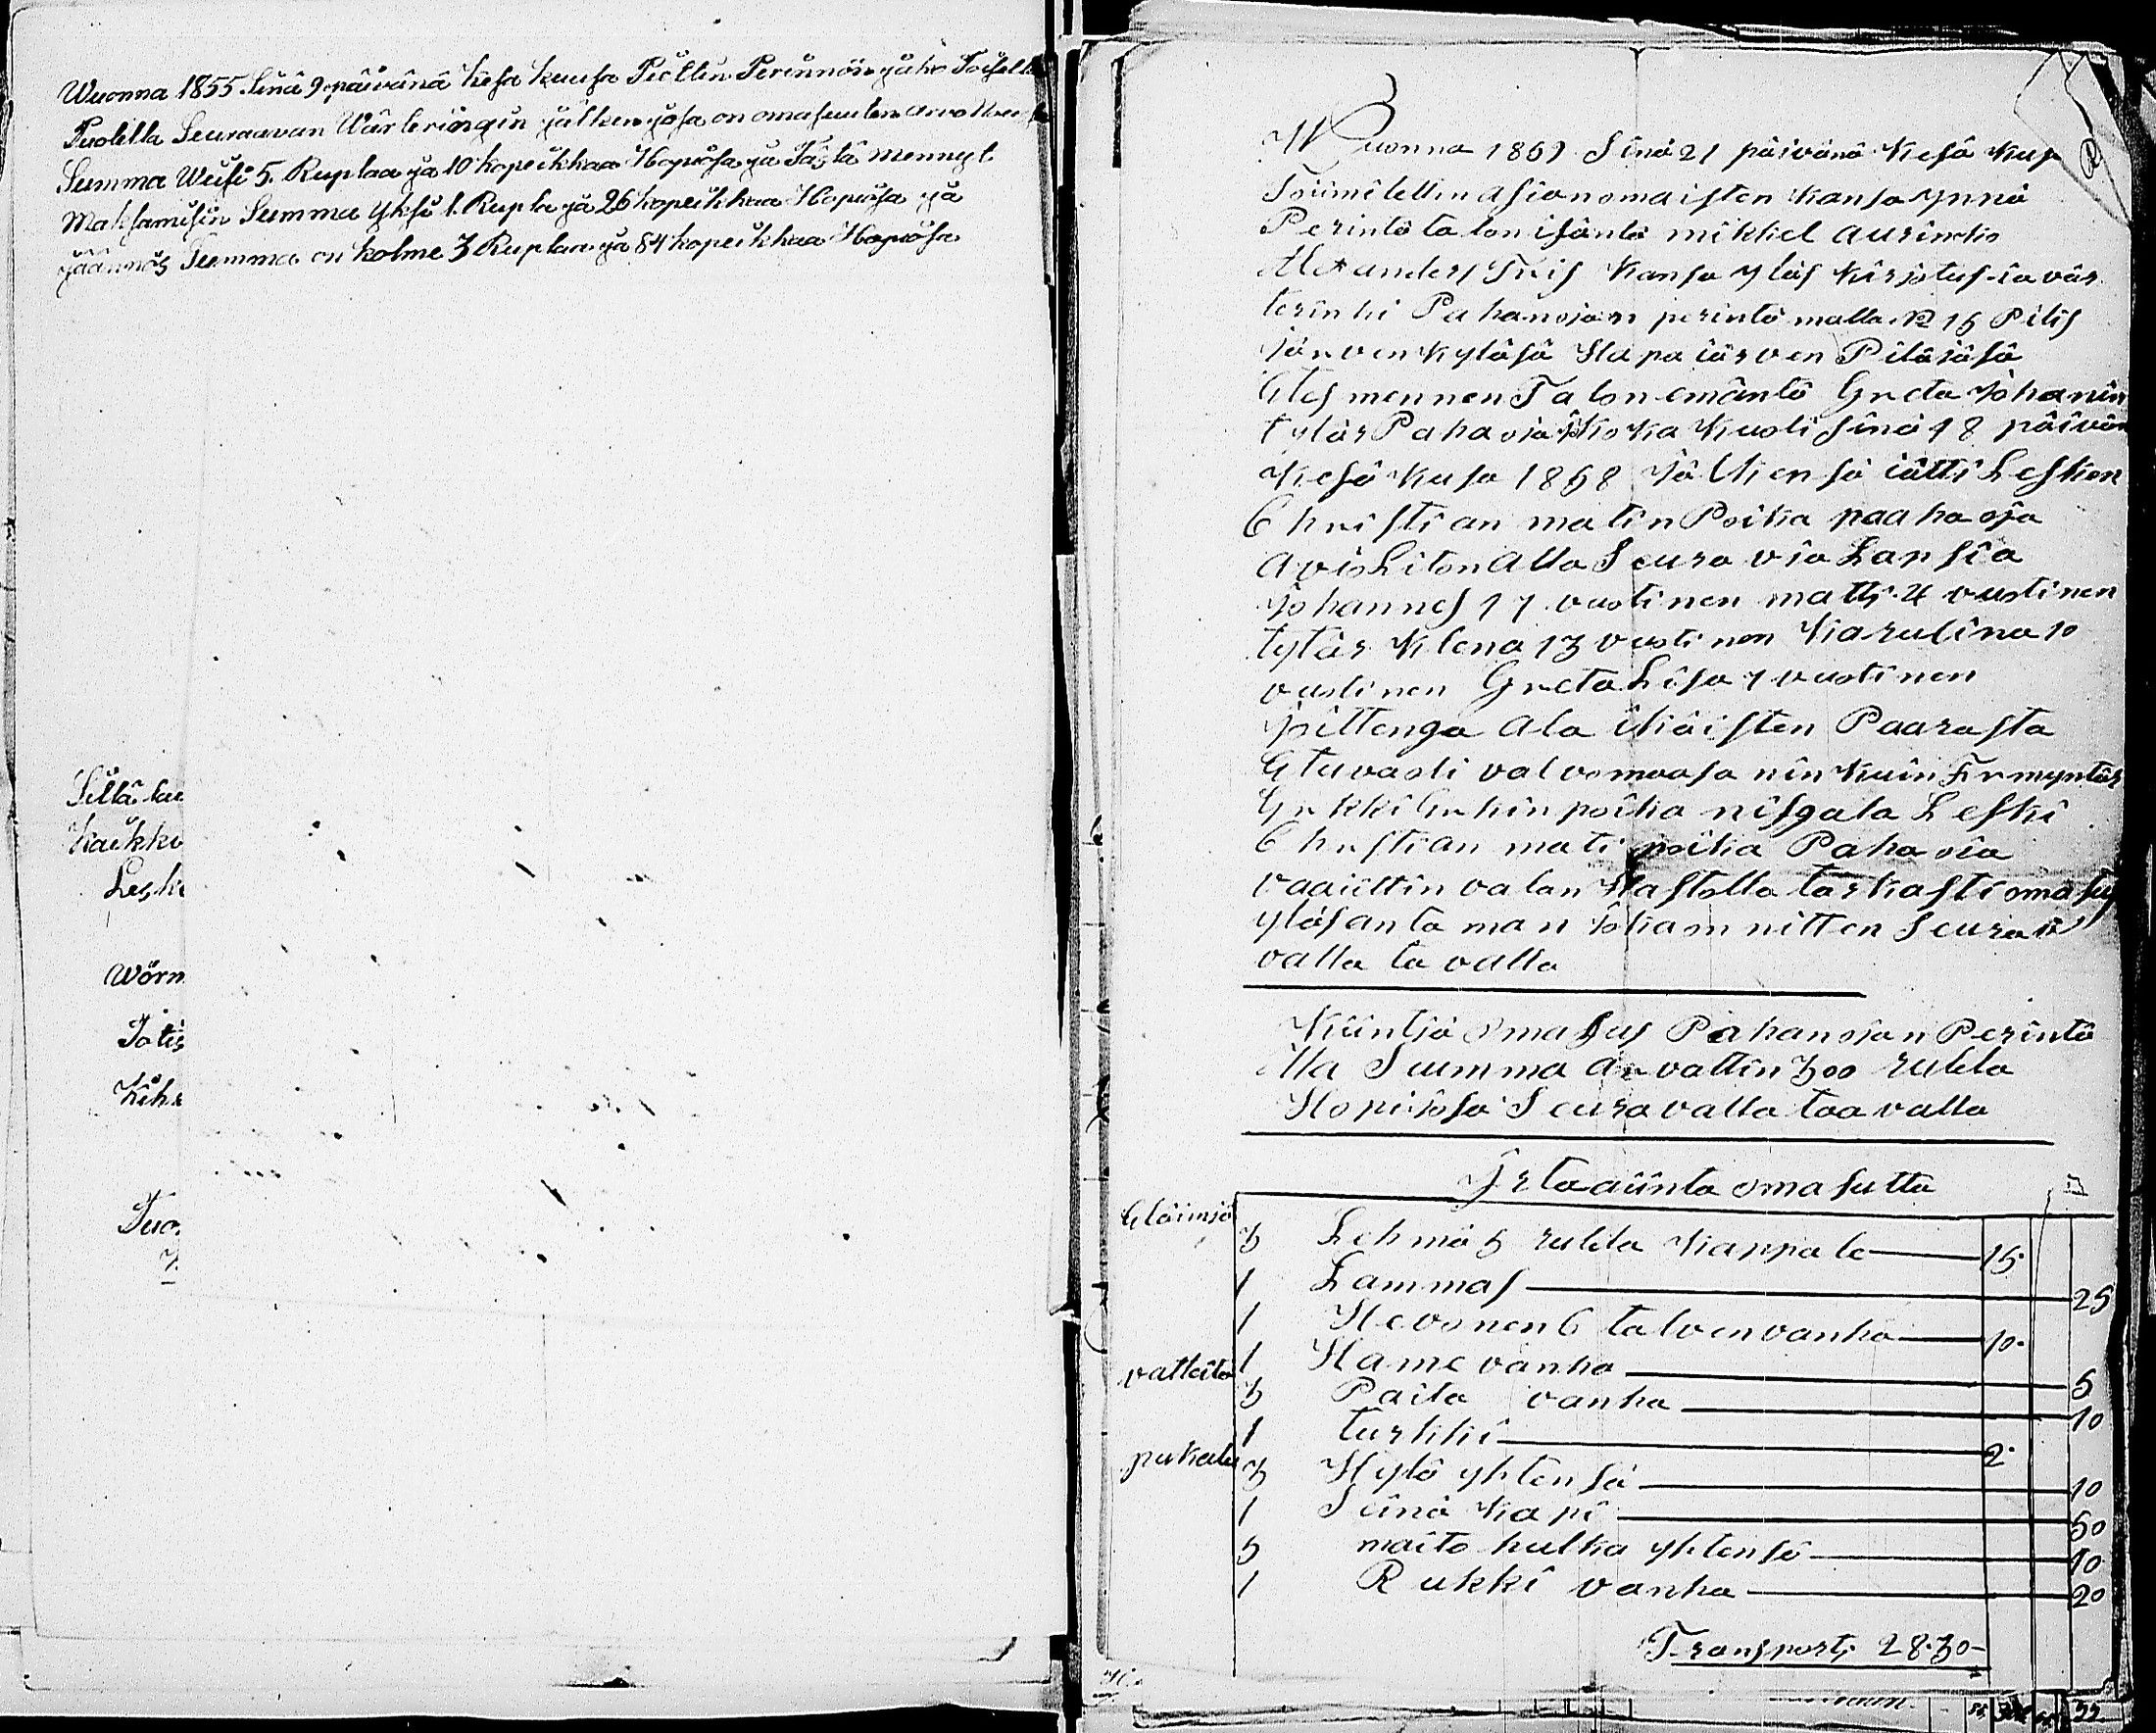 Wuonna 1855 Sinä 9 päivänä Kesa kuusa Piettin Perinnön jako Toisella
Puolella Seuraavan Wärleringin jälken josa on omasuuten arvo
Summa Wiisi 5. Ruplaa ja 10 kopeikkaa Hopiasa ja Tästä mennyt
Maksamisin Summa yksi 1. Rupla ja 26 kopeikkaa Hopiasa ja
jäännös Summa on kolme 3 Ruplaa ja 84 kopeikkaa Hopiasa
Sillä
Kaikki
Lesk
Wörm
Kihl
Tuo
Wuonna 1869 Sinä 21 päivänä Kesä Kus
Toimitettin asianomaisten Kansa ynnä
Perintö talon isäntä mikkel aurinko
Alexanders Kansa yläs Kirjotus ia vär
terinki Pahanojan perintö malla No 15 Pilis
Järven Kyläsä Hapajärven Pitäjäsä
Etes mennen Talon emäntä Greta Johanin
tytär Pahaoja Joka Kuoli sinä 18 päivän
Kesä Kusa 1868 Jälkensä iätti Lesken
Christian matin Poika paahaoja
avioliton alla Seura via Lapsia
Johannes 17 vuotinen matti 4 vuotinen
tytär Klena 13 vuotinen Karulina 10
vuotinen Greta Lisa 7 vuotinen
Joittenga ala ikäisten Paarasta
Etuvasti valvomaasa nin kuin Formyntär
Erkki Erkin poika nisgala Leski
Christian mati poika Pahaoia
vaaiittin valan Hastolla tarkasti omasus
yläsantaman Jokam nitten Seura
valla tavalla
Kiintjä omasus Pahanojan Perintö
Ma Summa arvattin 300 rubla
Hopiasa Seuravalla taavalla
Irtaaiinta omasutta
Eläimjä
3 Lehmä 5 rubla Kappale 15.
1 Lammas 25
1 Hevonen 6 talven vanha 10.
vatteita 1 Hame vanha 5
3 Paita vanha 10
1 turkki 2.
pukalu 3 Hylä yhtensä 10
1 Seinä Kapi 50
5 maito hulka yhtensä 10
1 Rukki vanha 20
Transport 28.30